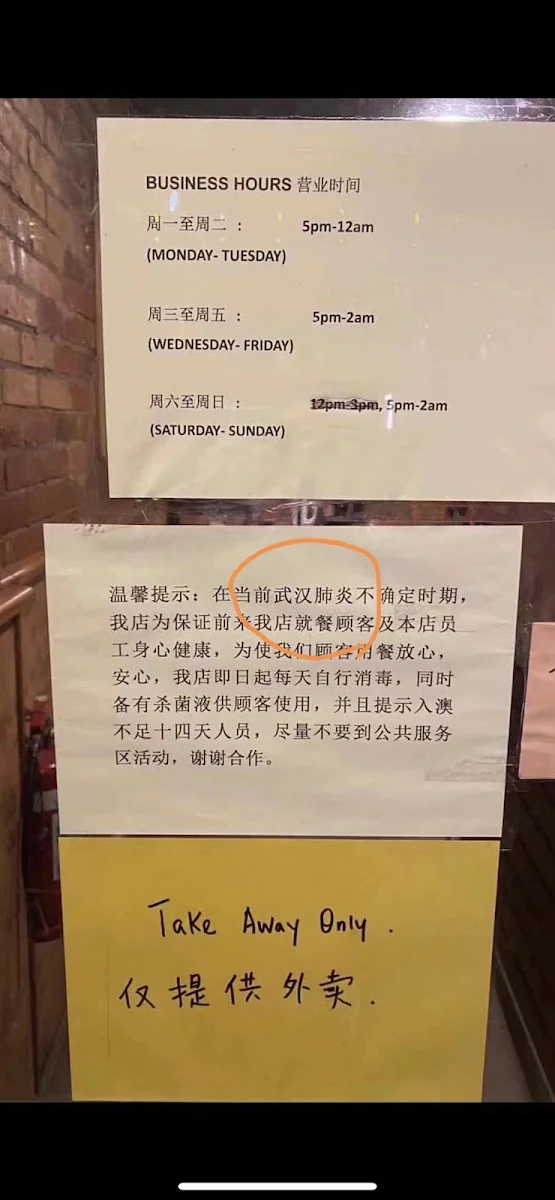 BUSINESS HOURS 营业时间
周一至周二： 5pm-12am
(MONDAY- TUESDAY)
周三至周五： 5pm-2am
(WEDNESDAY- FRIDAY)
周六至周日： 12pm-3pm, 5pm-2am
(SATURDAY- SUNDAY)
温馨提示：在当前武汉肺炎不确定时期，
我店为保证前来我店就餐顾客及本店员
工身心健康，为使我们顾客用餐放心，
安心，我店即日起每天自行消毒，同时
备有杀菌液供顾客使用，并且提示入澳
不足十四天人员，尽量不要到公共服务
区活动，谢谢合作。
Take Away Only.
仅提供外卖.